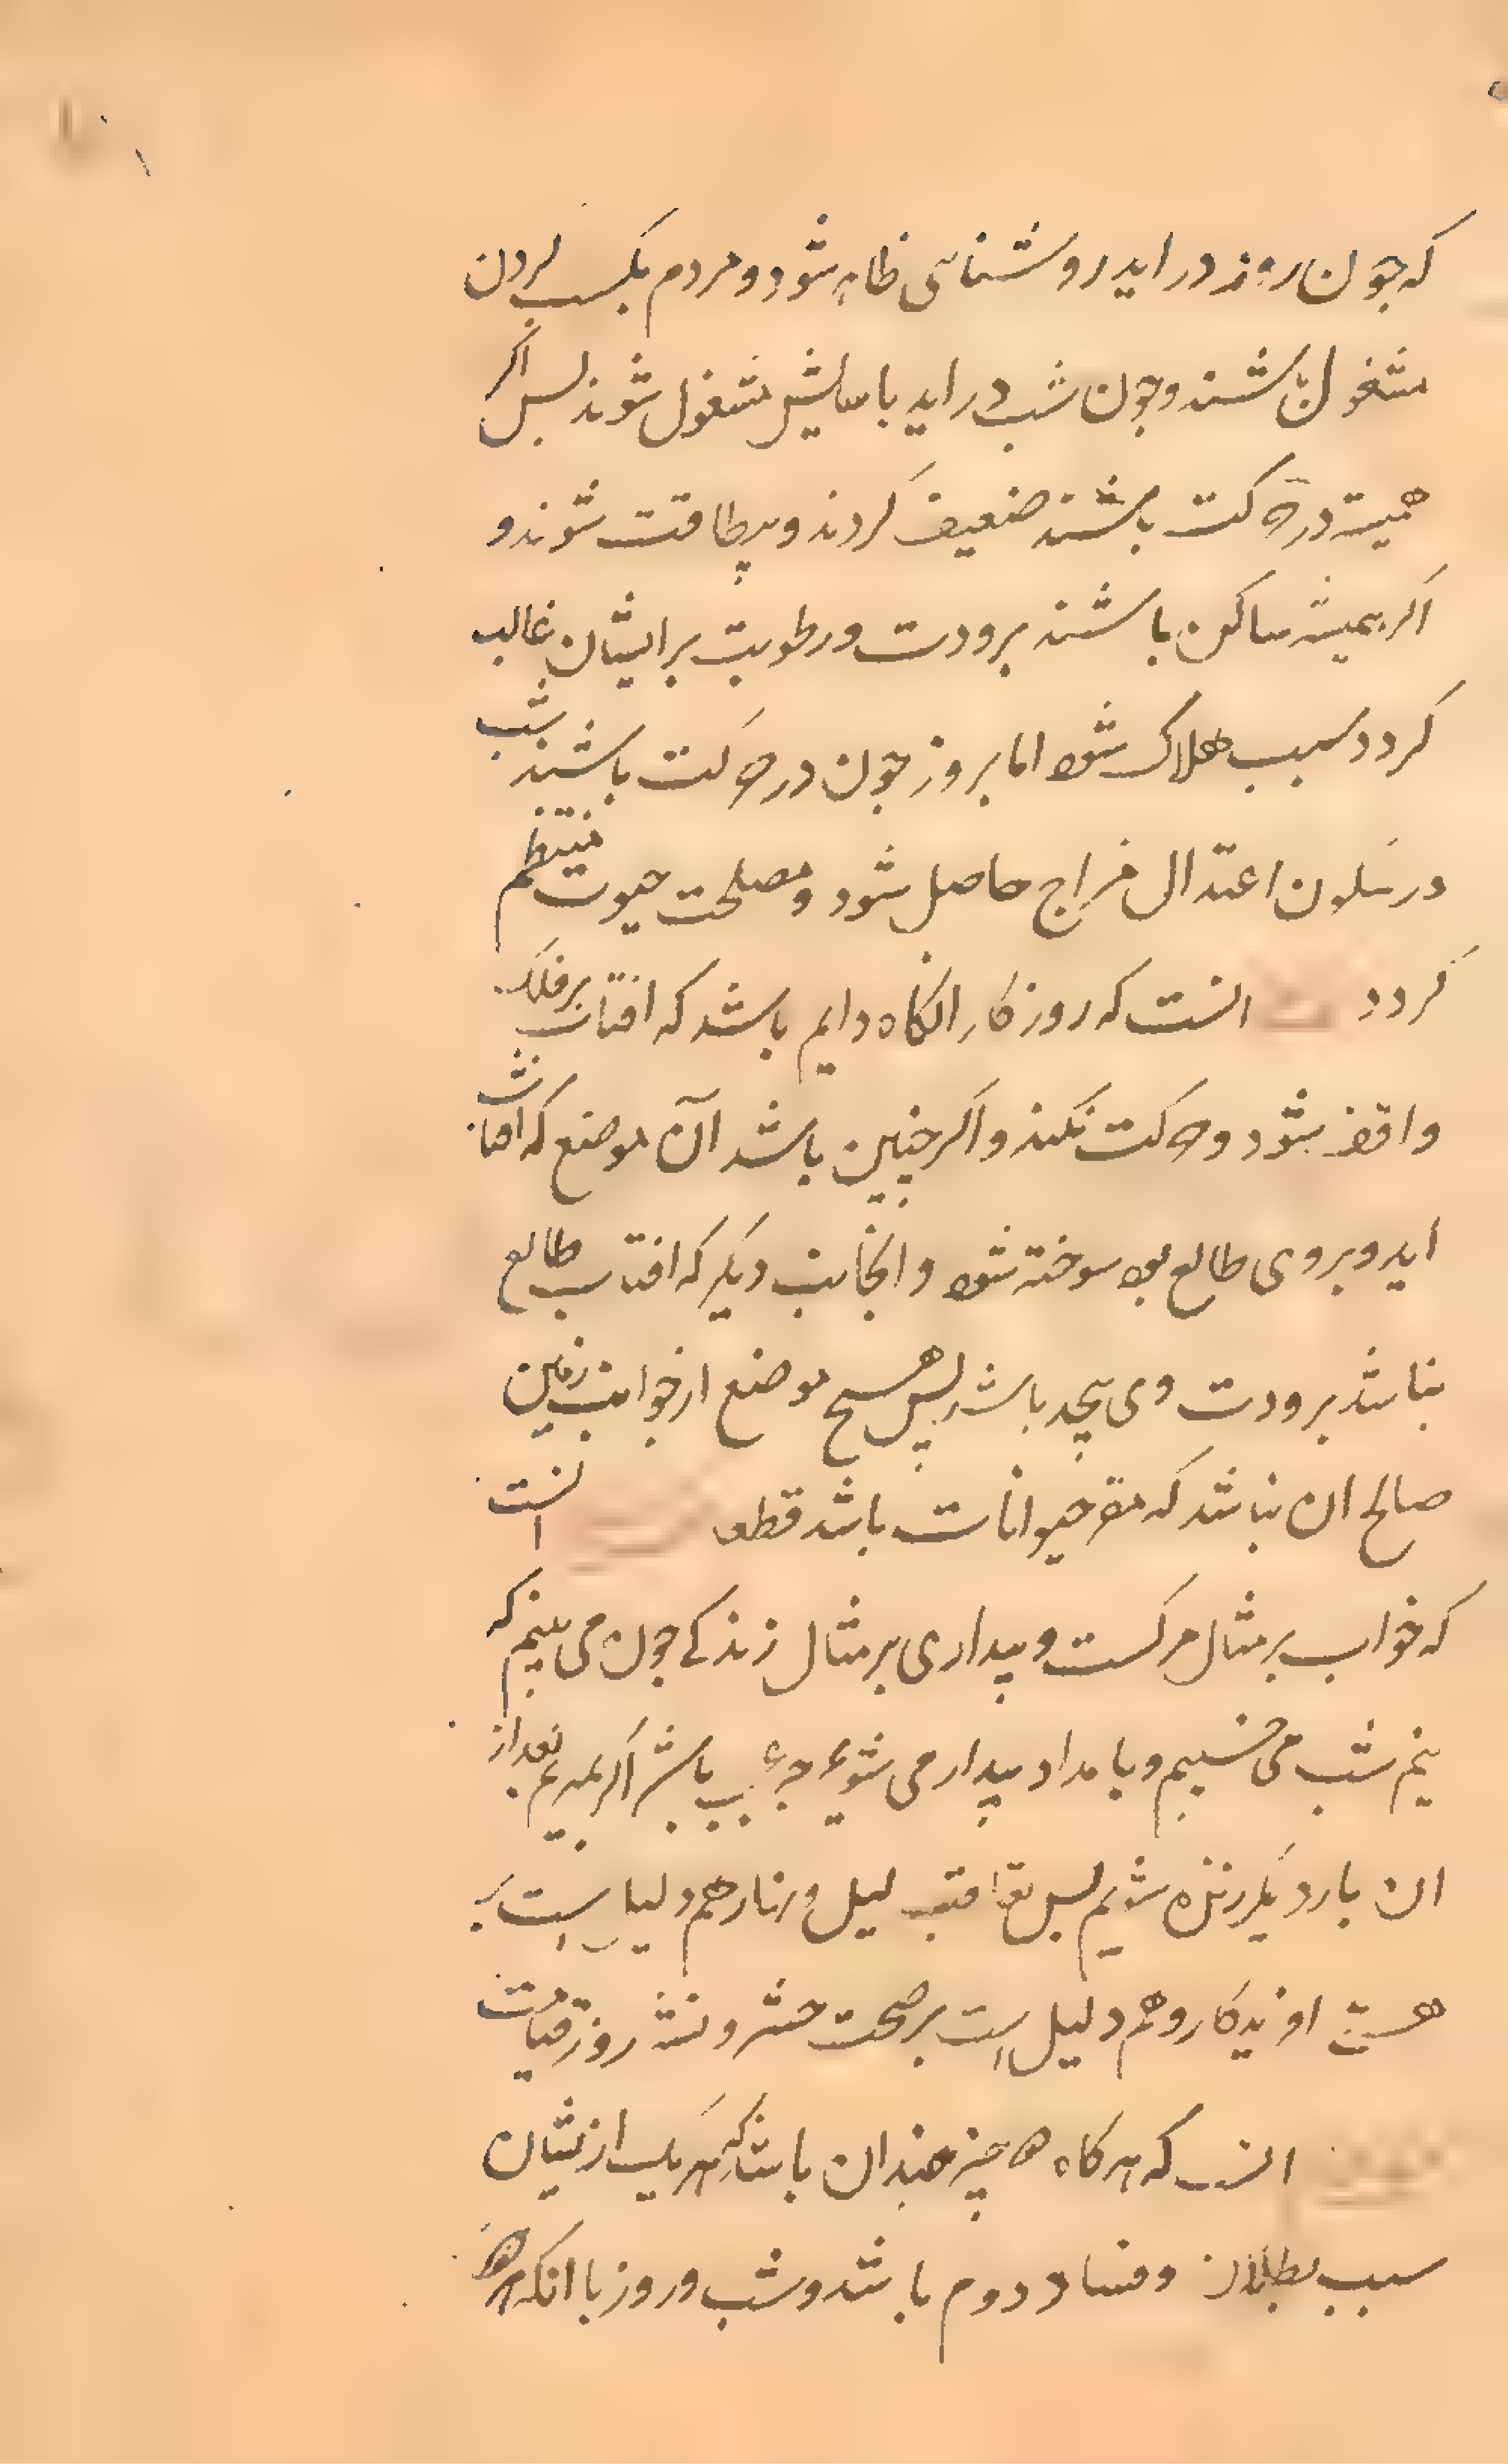 که جون روز در اید روشنائی ظاهر شود و مردم بکسب کردن
مشغول باشند و جون شب در اید باسایش مشغول شوند بس اکر
همیشه در حرکت باشند ضعیف کردند و بیطاقت شوند و
اکر همیشه ساکن باشند برودت و رطوبت بر ایشان غالب
کردد سبب هلاک شود اما بروز جون در حرکت باشند بشب
در سکون اعتدال مزاج حاصل شود و مصلحت حیوت منتظم
کردد انست که روزکار انکاه دایم باشد که افتاب بر فلک
واقف شود و حرکت نکند و اکر چنین باشد آن موضع که افتاب
اید و بروی طالع بود سوخته شود و انجانب دیکر که افتاب طالع
نباشد برودت وی بیحد باشد پس هیچ موضع از جوانب زمین
صالح ان نباشد که مقر حیوانات باشد قطعا انست
که خواب بر مثال مرکست و بیداری بر مثال زندکی جون می بینم که
نیم شب می خسبیم و بامداد بیدار می شویم جه عجب باشد اکر بمیریم بعد از
ان بار دیکر زنده شویم بس تعاقب لیل و نهار هم دلیل است بر
هستی افریدکار و هم دلیل است بر صحت حشر و نشر روز قیامت
انست که هر کاه دو چیز جندان باشد که هر یک از ایشان
سبب بطلان و فساد دوم باشد و شب و روز با انکه هر